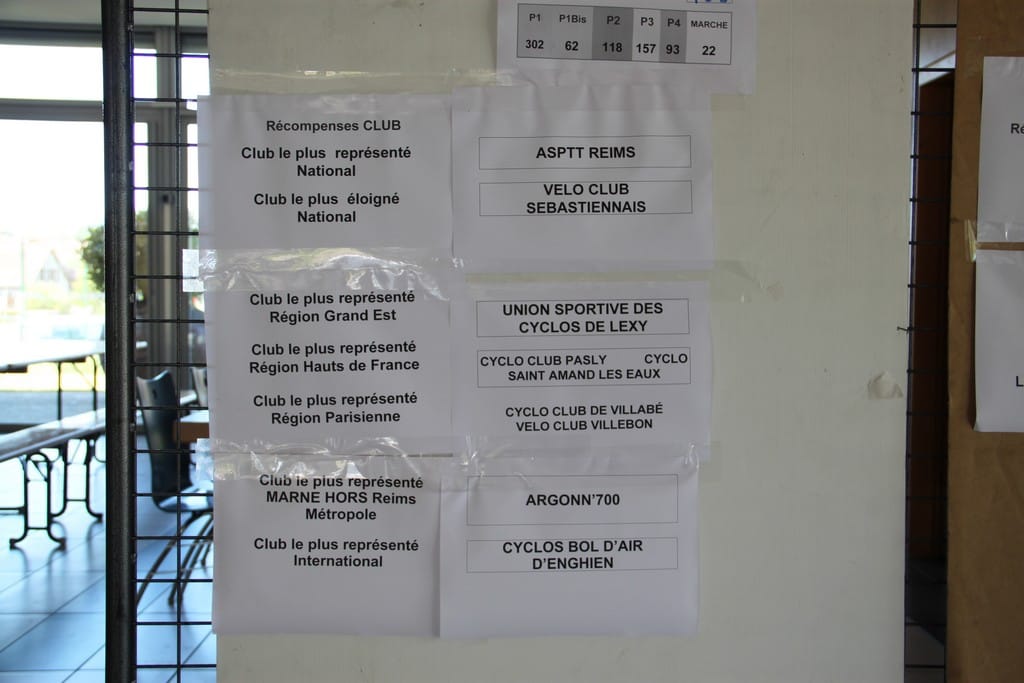 P1 P1Bis P2 P3 P4 MARCHE
302 62 118 157 93 22
Récompenses CLUB
Club le plus représenté
National
ASPTT REIMS
Club le plus éloigné
National
VELO CLUB
SEBASTIENNAIS
Club le plus représenté
Région Grand Est
UNION SPORTIVE DES
CYCLOS DE LEXY
Club le plus représenté
Région Hauts de France
CYCLO CLUB PASLY CYCLO
SAINT AMAND LES EAUX
Club le plus représenté
Région Parisienne
CYCLO CLUB DE VILLABÉ
VELO CLUB VILLEBON
Club le plus représenté
MARNE HORS Reims
Métropole
ARGONN'700
Club le plus représenté
International
CYCLOS BOL D'AIR
D'ENGHIEN
Ré
L